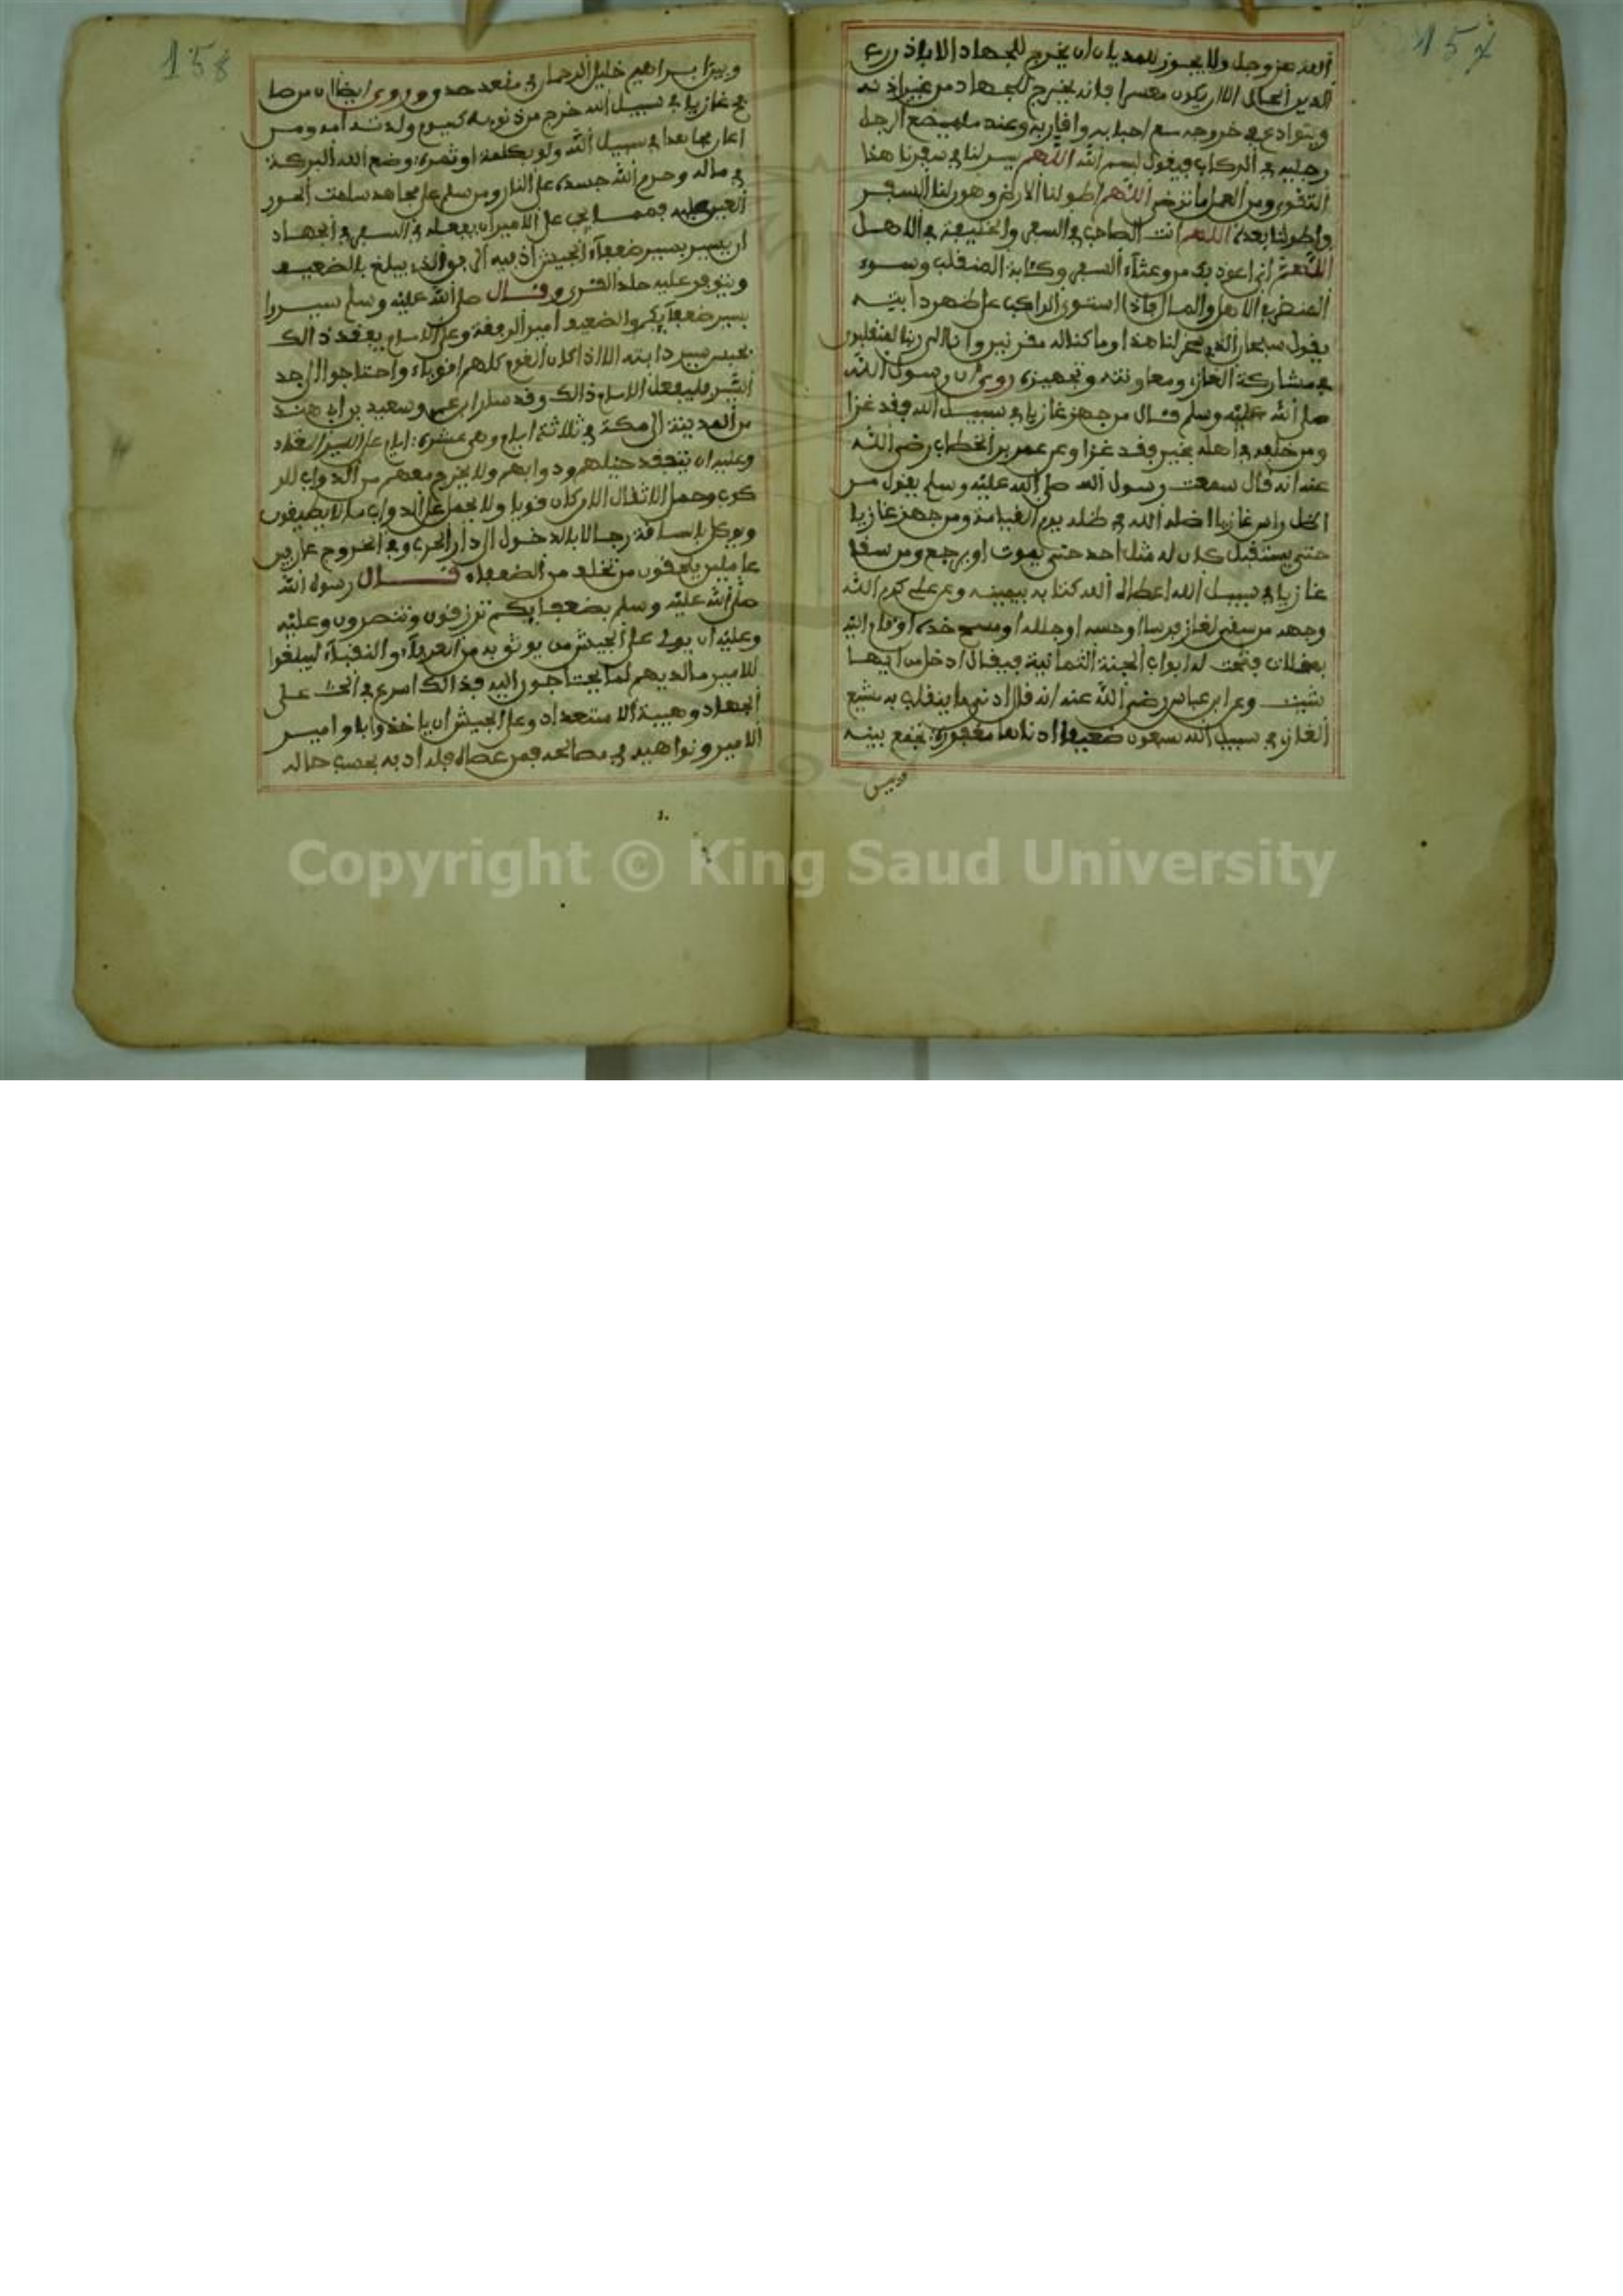 157
الله عز وجل ولا يجوز للمديان ان يخرج للجهاد الا باذن رب
الدين الحال الا ان يكون معسرا فانه يخرج للجهاد من غير اذنه
ويتوادع في خروجه مع احبابه واقاربه وعند ما يضع الرجل
رجليه في الركاب فيقول بسم الله اللهم يسر لنا في سفرنا هذا
التقوى ومن العمل ما ترضى اللهم اطو لنا الارض وهون لنا السفر
واطو لنا بعده اللهم انت الصاحب في السفر والخليفة في الاهل
اللهم اني اعوذ بك من وعثاء السفر وكئابة المنقلب وسوء
المنظر في الاهل والمال فاذا استوى الراكب على ظهر دابته
يقول سبحان الذي سخر لنا هذا وما كنا له مقرنين وانا الى ربنا لمنقلبون
في مشاركة الغاز ومعاونته وتجهيزه روي ان رسول الله
صلى الله عليه وسلم قال من جهز غازيا في سبيل الله فقد غزا
ومن خلفه في اهله بخير فقد غزا وعن عمر بن الخطاب رضي الله
عنه انه قال سمعت رسول الله صلى الله عليه وسلم يقول من
اظل راس غازيا اظله الله في ظله يوم القيامة ومن جهز غازيا
حتى يستقبل كان له مثل اجره حتى يموت او يرجع ومن سقا
غازيا في سبيل الله اعطاه الله كتابه بيمينه وعن علي كرم الله
وجهه من سقى لغاز فرسا او حسه او جلله او مسح خده او قام اليه
بعلف فتحت له ابواب الجنة الثمانية فيقال ادخل من ايها
شيت وعن ابن عباس رضي الله عنه انه قال ادنى ما ينقلب به مشيع
الغازي في سبيل الله سبعون ضعيفا ادناها مغفورة يجمع بينه
وبين
158
وبين ابراهيم خليل الرحمان في مقعد صدق وروي ايضا ان من صا
فح غازيا في سبيل الله خرج من ذنوبه كيوم ولدته امه ومن
اعان مجاهدا في سبيل الله ولو بكلمة او ثمرة وضع الله البركة
في ماله وحرم الله جسده على النار ومن سلم على مجاهد سلمت الحور
العين عليه فصل يجب على الامير ان يفعله في السفر في الجهاد
ان يسير بسير ضعفاء الجيش اذ فيه الى يبلغ بالضعيف
ويتوفر عليه جلد القوى وقال صلى الله عليه وسلم سيروا
بسير ضعفايكم والضعيف امير الرفقة وعلى الامام يفقد ذالك
بحبس سير دابته الا اذا كان القوم كلهم اقوياء واحتاجوا الى جد
السير فليفعل الامام ذالك وقد سار ابن عمر وسعيد بن ابي هند
من المدينة الى مكة في ثلاثة ايام وهي عشرة ايام على السير المعتاد
وعليه ان يتفقد خيلهم ودوابهم ولا يخرج معهم من الدواب للر
كوب وحمل الاثقال الا ان كان قويا ولا يحمل على الدواب ما لا يطيقون
ويوكل بالساقة رجالا بالدخول الى دار الحرب وفي الخروج عارفين
عاملين يلحقون من تخلف من الضعفاء قال رسول الله
صلى الله عليه وسلم بضعفايكم ترزقون وتنصرون وعليه
وعليه ان يولى على الجيش من يوثق به من العرفاء والنقباء ليبلغوا
للامير ما لديهم لما يحتاجون اليه فذالك اسرع في الحث على
الجهاد وهيبة الاستعداد وعلى الجيش ان ياخذوا باوامير
الامير ونواهيه في مصالحه فمن عصاه فله ادبه بحسب حاله
Copyright © King Saud University